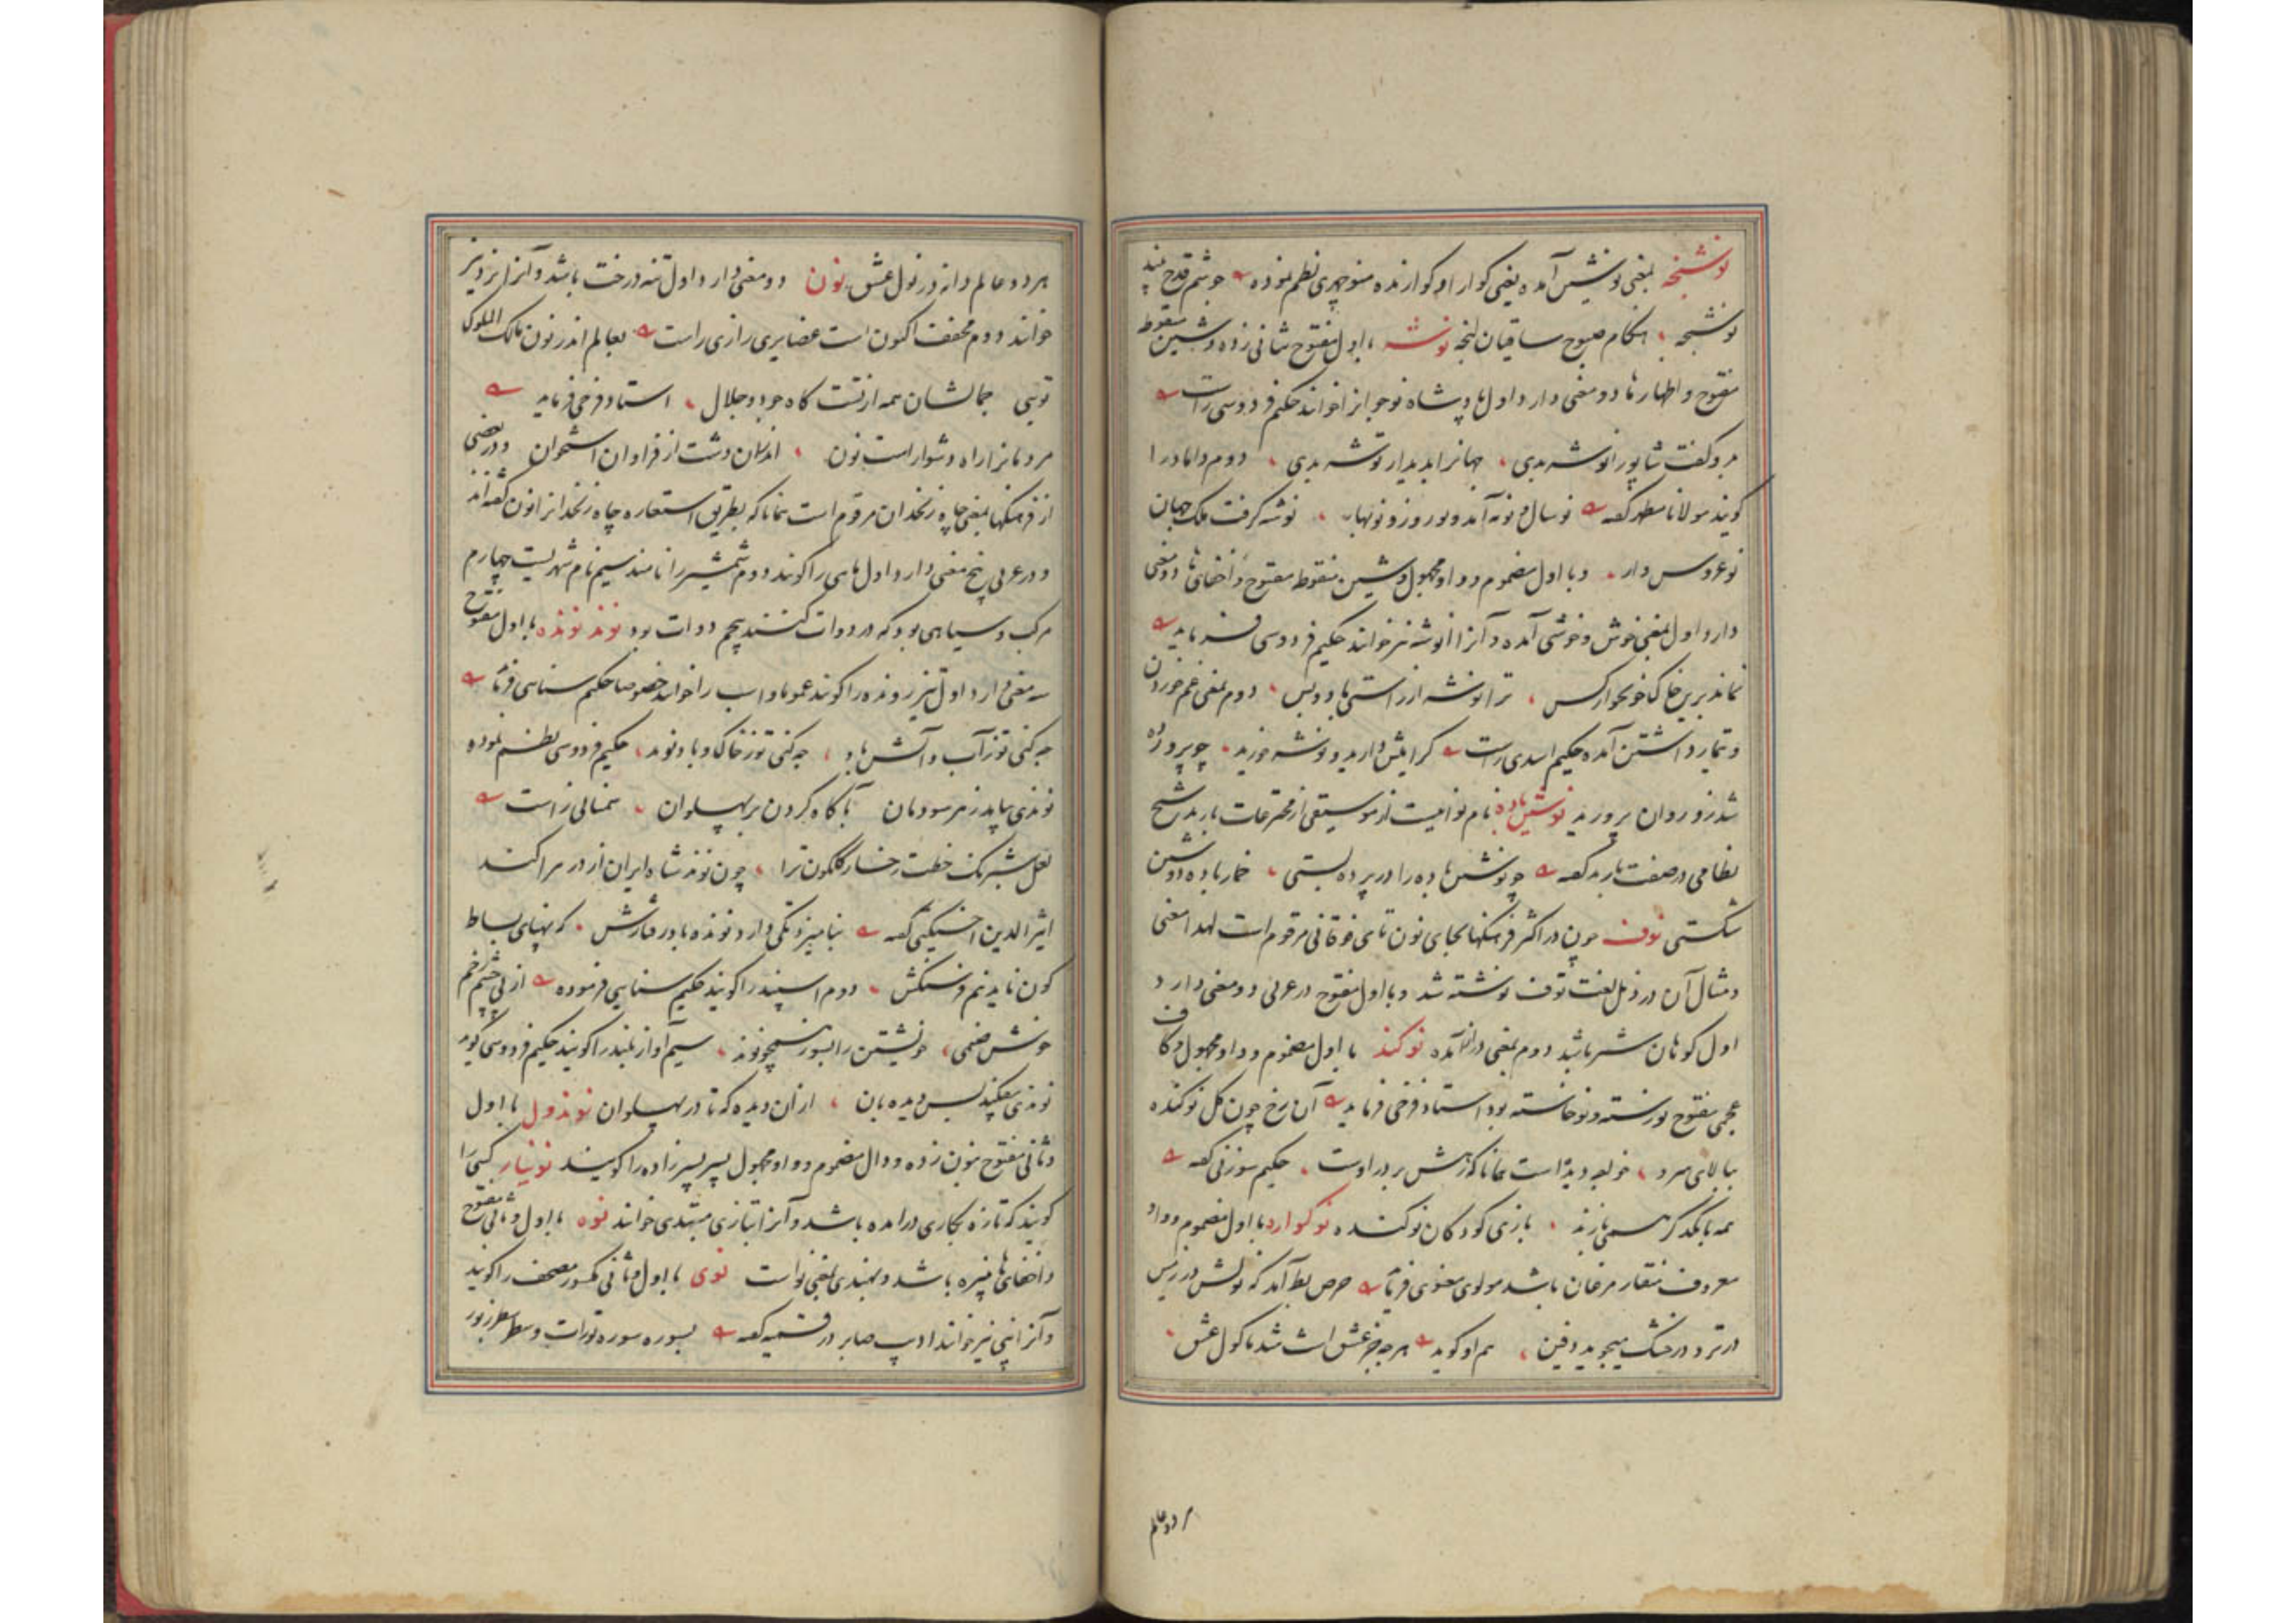 نوشنجه بمعنی نوشین آمده یعنی کوارا و کوارنده منوچهری نظم نموده جوشم قدح نبید
نوشنجه هنکام صبوح ساقیان لنجه نوشه با اول مفتوح بثانی زده و شین منقوط
مفتوح و اظهار ها دو معنی دارد اول پادشاه نوجوانرا خوانند حکیم فردوسی راست
بدو کفت شاپور انوشه بدی جهانرا بدیدار توشه بدی دوم داماد را
کویند مولانا مظهر کفته نو سال و نو مه آمد و نوروز و نوبهار نوشه کرفت ملک جهان
نوعروس دار و با اول مضموم و واو مجهول و شین منقوط مفتوح و اخفای ها دو معنی
دارد اول بمعنی خوش و خوشی آمده و آنرا انوشه نیز خوانند حکیم فردوسی فرماید
نماند برین خاک خونخوار کس ترا نوشه از راستی باد و بس دوم بمعنی غم خوردن
و تیمار داشتن آمده حکیم اسدی راست کرامیش دارید و نوشه خورید چو پرورده
شد زو روان پرورید نوشین باده نام نوائیست از موسیقی از مخترعات باربد شیخ
نظامی در صفت باربد کفته چو نوشین باده را در پرده بستی خمار باده دوشین
شکستی نوف چون در اکثر فرهنکها بجای نون تای فوقانی مرقوم است لهذا معنی
و مثال آن در ذیل لغت توف نوشته شد و با اول مفتوح در عربی دو معنی دارد
اول کوهان شتر باشد دوم بمعنی درآمده نوکند با اول مضموم و واو مجهول و کاف
عجمی مفتوح نورسته و نوخاسته بود استاد فرخی فرماید آن رخ چون کل نوکنده
ببالای سرو حکیم سوزنی کفته
همه با یکدکر همی بازند بازی کودکان نوکنده نوک با اول مضموم و واو
معروف منقار مرغان باشد مولوی معنوی فرماید حرص بط آمد که نولش در زمین
در تر و در خشک میجوید دفین هم او کوید هر چه جز عشق است شد ماکول عشق
هر دو عالم
هر دو عالم دانه در نول عشق نون دو معنی دارد اول تنه درخت باشد و آنرا نرد نیز
خوانند دوم مخفف اکنون است غضایری رازی راست بعالم اندر نون مالک الملوک
تویی جمالشان همه از تست کاه جود و جلال استاد فرخی فرماید
مردمانرا راه دشوار است نون اندران دشت از فراوان استخوان و در بعضی
از فرهنکها بمعنی چاه زنخدان مرقوم است همانا که بطریق استعاره چاه زنخدانرا نون کفته اند
و در عربی پنج معنی دارد اول ماهی را کویند دوم شمشیر را نامند سیم نام شهریست چهارم
مرکب و سیاهی بود که در دوات کنند پنجم دوات بود نوند نونده با اول مفتوح
سه معنی دارد اول تیز رونده را کویند عموما و اسب را خوانند خصوصا حکیم سنایی فرماید
چه کنی توز آب و آتش باد چه کنی توز خاک و باد نوند حکیم فردوسی نظم نموده
نوندی بیامد ز هر سو دمان آکاه کردن بر پهلوان همنالی راست
لعل شبرنک خطت رخسار کلکون ترا چون نوند شاه ایران از در مرا کند
اثیرالدین اخسیکتی کفته بنامیزد تکی دارد نونده با در رفتارش که پهنای بساط
کون ناید نیم فرسنکش دوم اسپند را کویند حکیم سنایی فرموده از پی چشم زخم
خوش چشمی خویشتن را بسوز همچو نوند سیم آواز بلند را کویند حکیم فردوسی کوید
نوندی بیفکند پس دیده بان از آن دیده که تا در پهلوان نوندول با اول
و ثانی مفتوح بنون زده و دال مضموم و واو مجهول پسر پسرزاده را کویند نونیاز کسی را
کویند که تازه بکاری درآمده باشد و آنرا بتازی مبتدی خوانند نوه با اول و ثانی مفتوح
و اخفای ها نبیره باشد و بهندی بمعنی نو است نوی با اول و ثانی مکسور مصحف را کویند
و آنرا نبی نیز خوانند ادیب صابر در قسمیه کفته بسوره سوره تورات و سطر سطر زبور